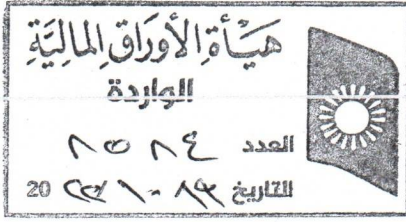 هَيْأَةُ الأَوْرَاقِ المَالِيَّةِ
الواردة
العدد ٨٥٨٤
التاريخ 20